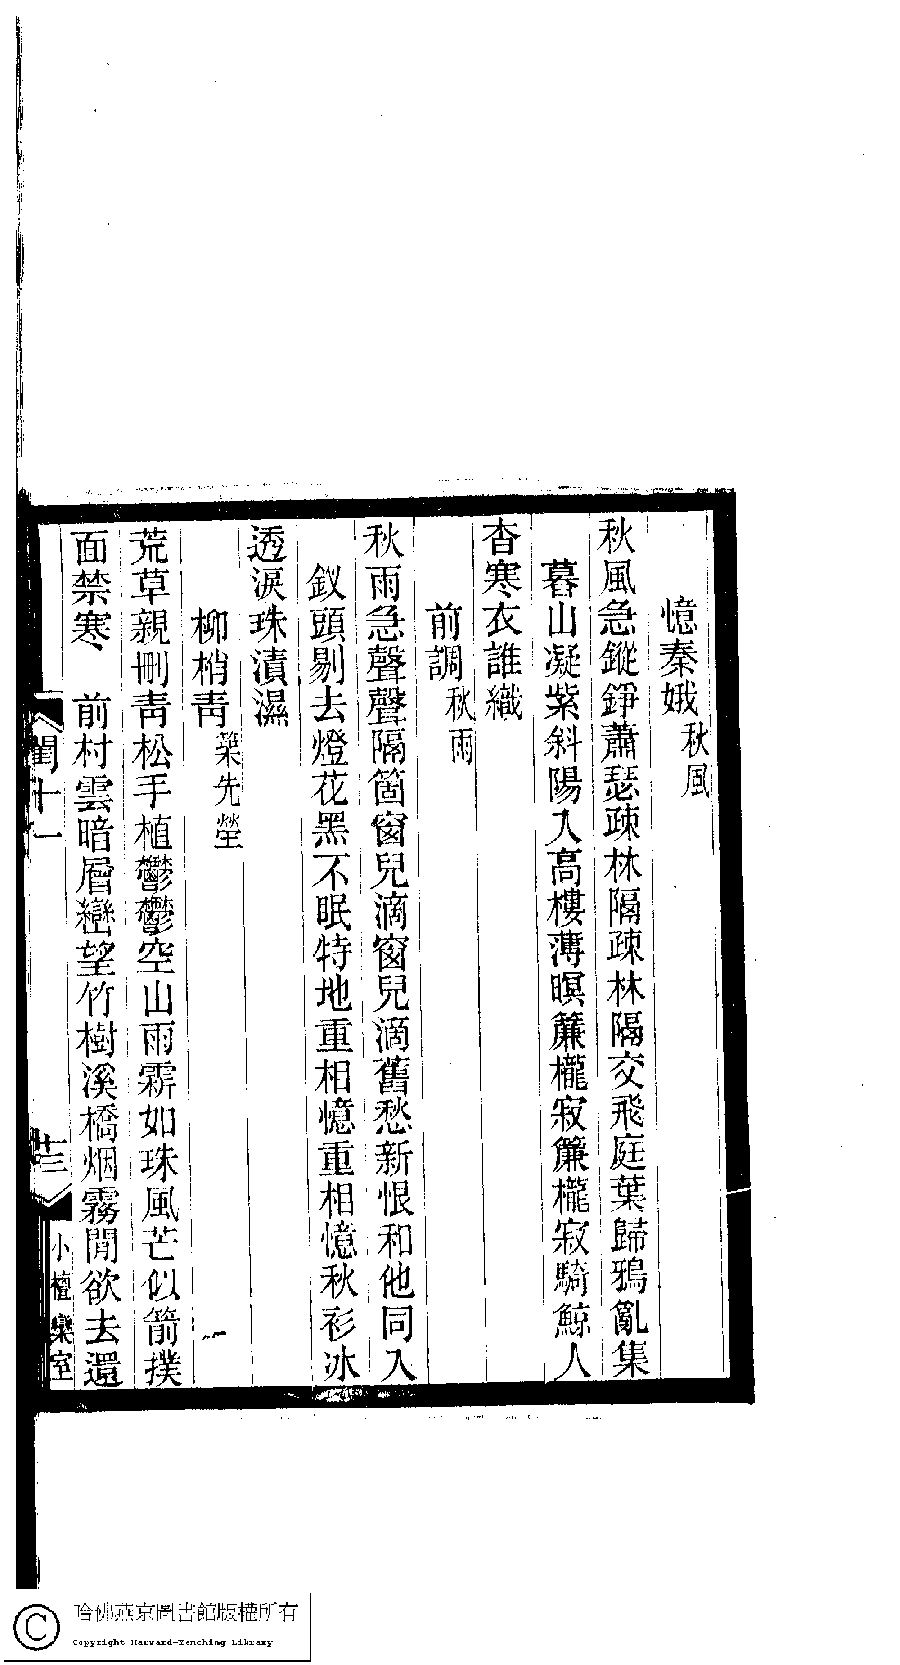 憶秦娥秋風
秋風急鏦錚蕭瑟疎林隔疎林隔交飛庭葉歸鴉亂集
暮山凝紫斜陽入高樓薄暝簾櫳寂簾櫳寂騎鯨人
杳寒衣誰織
前調秋雨
秋雨急聲聲隔箇窗兒滴窗兒滴舊愁新恨和他同入
釵頭剔去燈花黑不眠特地重相憶重相憶秋衫冰
透淚珠漬濕
柳梢青築先塋
荒草親刪青松手植鬱鬱空山雨霰如珠風芒似箭撲
面禁寒 前村雲暗層巒望竹樹溪橋烟霧閒欲去還
閨十一
十三
小檀欒室
哈佛燕京圖書館版權所有
Copyright Harvard-Yenching Library